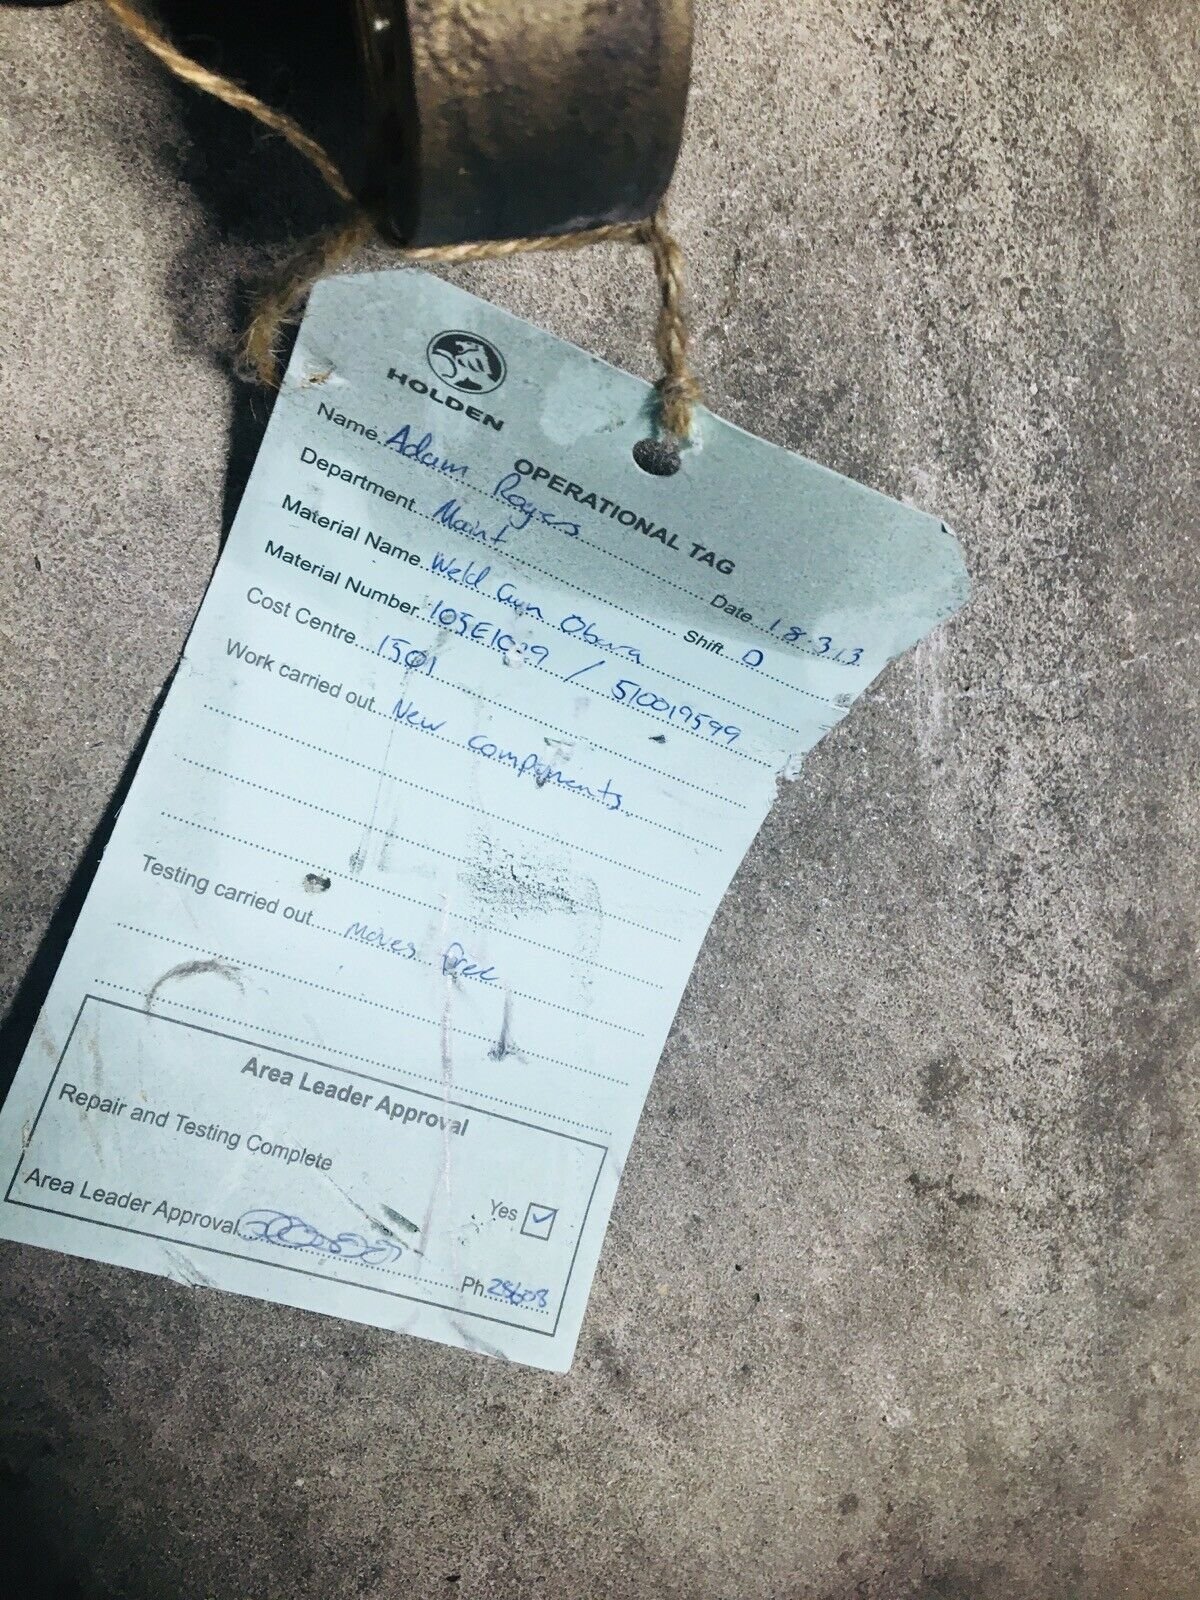 HOLDEN
OPERATIONAL TAG
Name Adam Rogers Date 18.3.13
Department Maint Shift D
Material Name Weld Gun Obara
Material Number / 510019599
Cost Centre 1501
Work carried out New components
Testing carried out Moves free
Area Leader Approval
Repair and Testing Complete Yes
Area Leader Approval Ph 28608